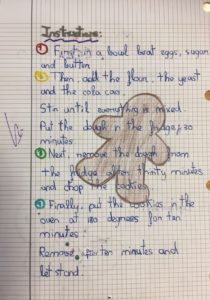 Instructions:
1 First, in a bowl beat eggs, sugar
and butter.
2 Then, add the flour, the yeast
and the cola cao.
Stir until everything is mixed.
Put the dough in the fridge, 30
minutes
3 Next, remove the dough from
the fridge after thirty minutes
and chop the cookies
4 Finally, put the cookies in the
oven at 180 degrees for ten
minutes.
Remove after ten minutes and
let stand.